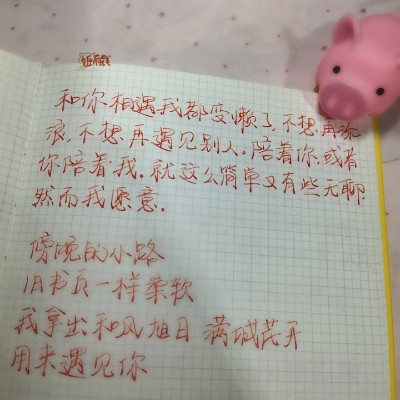 和你相遇我都变懒了,不想再流
浪,不想再遇见别人.陪着你,或者
你陪着我.就这么简单又有些无聊.
然而我愿意.
傍晚的小路
旧书页一样柔软
我拿出和风旭日 满城花开
用来遇见你